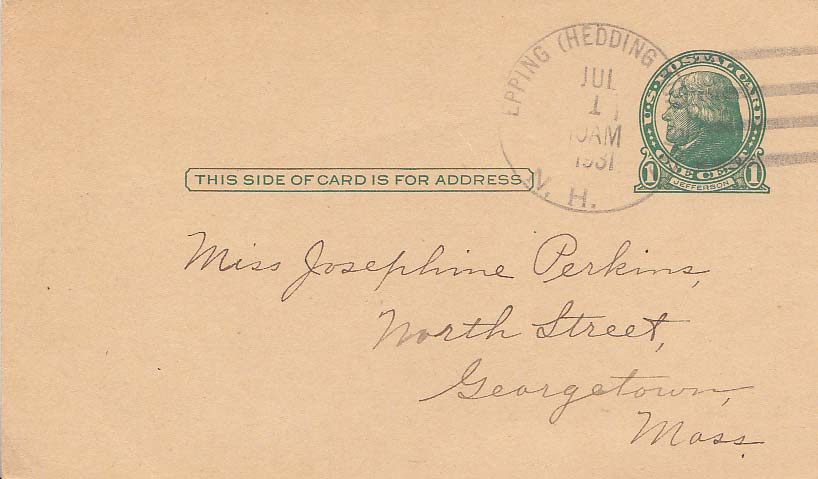 EPPING (HEDDING
JUL
1
10AM
1931
N. H.
U.S. POSTAL CARD
ONE CENT
1 JEFFERSON 1
THIS SIDE OF CARD IS FOR ADDRESS
Miss Josephine Perkins,
North Street,
Georgetown,
Mass.